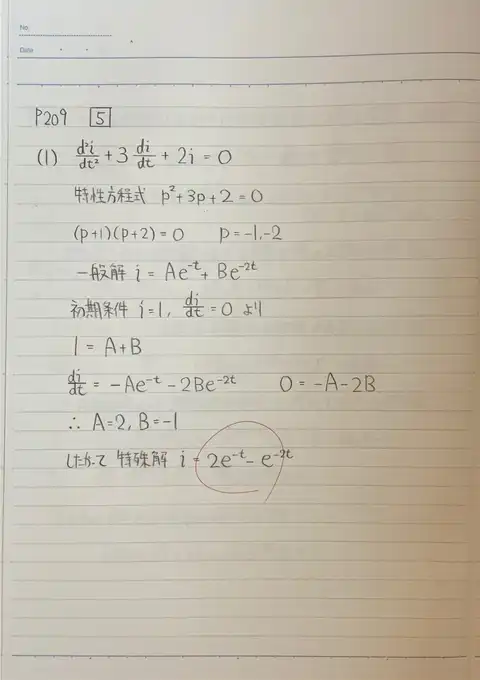 No.
Date
P209 5
(1) d²i/dt² + 3 di/dt + 2i = 0
特性方程式 p²+3p+2=0
(p+1)(p+2)=0 p=-1,-2
一般解 i = Ae^-t + Be^-2t
初期条件 i=1, di/dt=0 より
1 = A+B
di/dt = -Ae^-t - 2Be^-2t 0 = -A-2B
∴ A=2, B=-1
したがって 特殊解 i = 2e^-t - e^-2t